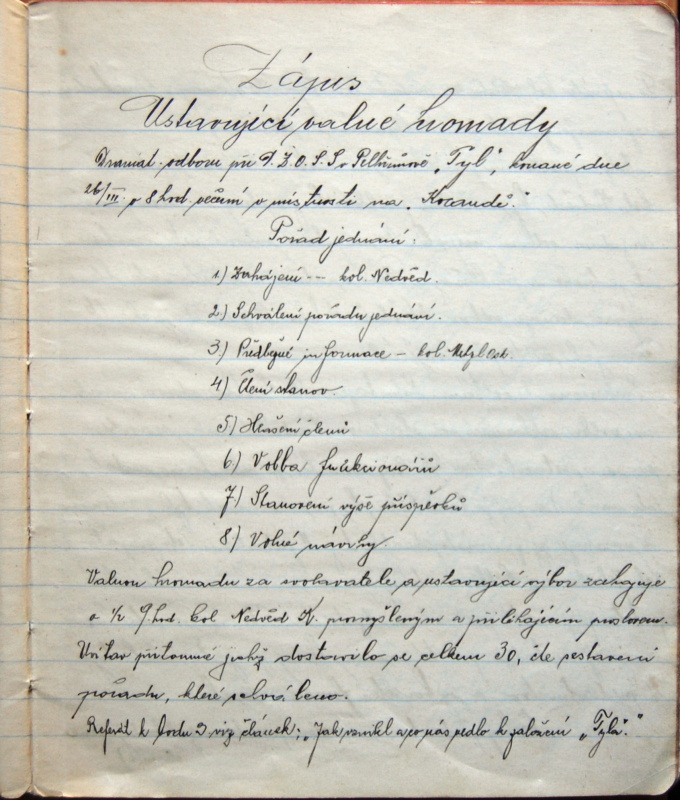 Zápis
Ustavující valné hromady
Dramat. odboru při D.Ž.O.S.S. v Pelhřimově „Tyl", konané dne
26/III. o 8 hod. večerní v místnosti na „Kocandě."
Pořad jednání:
1.) Zahájení -- kol. Nedvěd.
2.) Schválení pořadu jednání.
3.) Předběžné informace – kol.
4.) Čtení stanov.
5.) Hlášení členů
6.) Volba funkcionářů
7.) Stanovení výše příspěvků
8.) Volné návrhy.
Valnou hromadu za svolavatele a ustavující výbor zahajuje
o ½ 9 hod. kol. Nedvěd K. promyšleným a přiléhajícím proslovem.
Uvítav přítomné jichž dostavilo se celkem 30, čte sestavení
pořadu, které schváleno.
Referát k bodu 3 viz článek: „Jak vznikl a co nás vedlo k založení „Tyla."